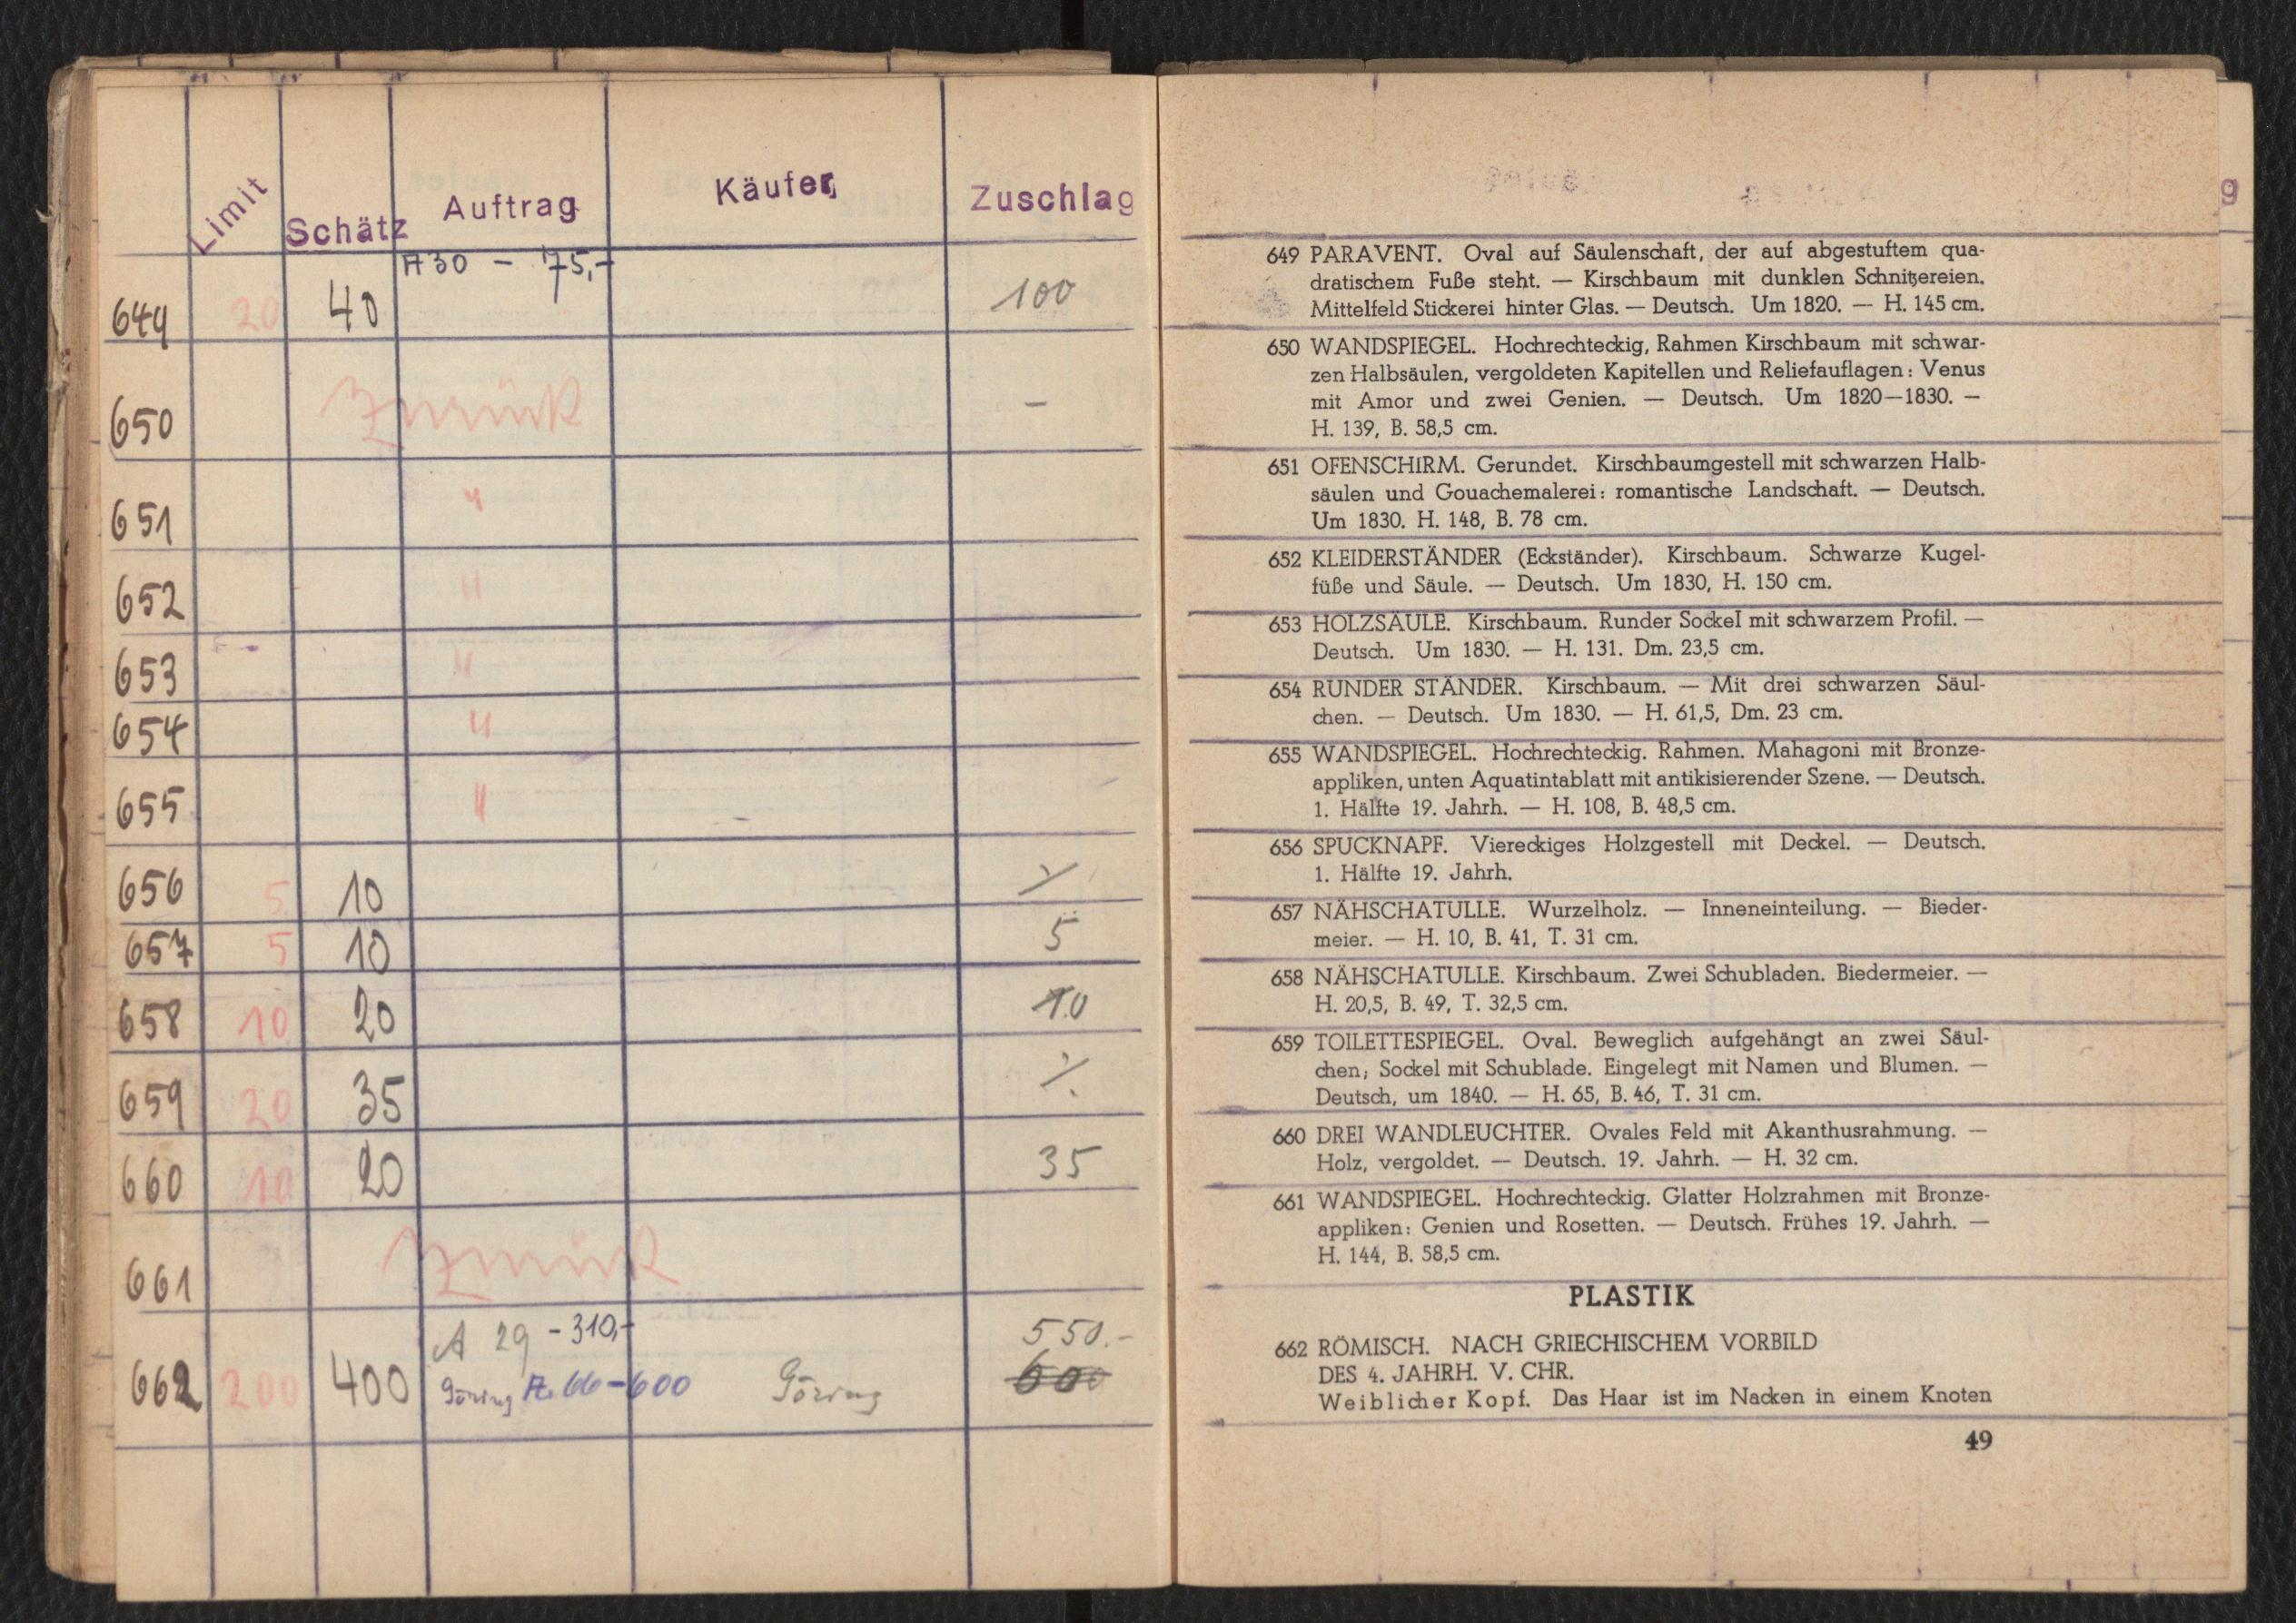 Limit Schätz Auftrag Käufer Zuschlag
A 30 - 75,-
649 20 40 100
650 Zurück -
651 "
652 "
653 "
654 "
655 "
656 5 10 ⁒
657 5 10 5
658 10 20 10
659 20 35 ⁒
660 10 20 35
661 Zurück
A 29 - 310,- 550.-
662 200 400 Göring A. 66 - 600 Göring 600
g
649 PARAVENT. Oval auf Säulenschaft, der auf abgestuftem qua-
dratischem Fuße steht. — Kirschbaum mit dunklen Schnitzereien.
Mittelfeld Stickerei hinter Glas. — Deutsch. Um 1820. — H. 145 cm.
650 WANDSPIEGEL. Hochrechteckig, Rahmen Kirschbaum mit schwar-
zen Halbsäulen, vergoldeten Kapitellen und Reliefauflagen: Venus
mit Amor und zwei Genien. — Deutsch. Um 1820—1830. —
H. 139, B. 58,5 cm.
651 OFENSCHIRM. Gerundet. Kirschbaumgestell mit schwarzen Halb-
säulen und Gouachemalerei: romantische Landschaft. — Deutsch.
Um 1830. H. 148, B. 78 cm.
652 KLEIDERSTÄNDER (Eckständer). Kirschbaum. Schwarze Kugel-
füße und Säule. — Deutsch. Um 1830, H. 150 cm.
653 HOLZSÄULE. Kirschbaum. Runder Sockel mit schwarzem Profil. —
Deutsch. Um 1830. — H. 131. Dm. 23,5 cm.
654 RUNDER STÄNDER. Kirschbaum. — Mit drei schwarzen Säul-
chen. — Deutsch. Um 1830. — H. 61,5, Dm. 23 cm.
655 WANDSPIEGEL. Hochrechteckig. Rahmen. Mahagoni mit Bronze-
appliken, unten Aquatintablatt mit antikisierender Szene. — Deutsch.
1. Hälfte 19. Jahrh. — H. 108, B. 48,5 cm.
656 SPUCKNAPF. Viereckiges Holzgestell mit Deckel. — Deutsch.
1. Hälfte 19. Jahrh.
657 NÄHSCHATULLE. Wurzelholz. — Inneneinteilung. — Bieder-
meier. — H. 10, B. 41, T. 31 cm.
658 NÄHSCHATULLE. Kirschbaum. Zwei Schubladen. Biedermeier. —
H. 20,5, B. 49, T. 32,5 cm.
659 TOILETTESPIEGEL. Oval. Beweglich aufgehängt an zwei Säul-
chen; Sockel mit Schublade. Eingelegt mit Namen und Blumen. —
Deutsch, um 1840. — H. 65, B. 46, T. 31 cm.
660 DREI WANDLEUCHTER. Ovales Feld mit Akanthusrahmung. —
Holz, vergoldet. — Deutsch. 19. Jahrh. — H. 32 cm.
661 WANDSPIEGEL. Hochrechteckig. Glatter Holzrahmen mit Bronze-
appliken: Genien und Rosetten. — Deutsch. Frühes 19. Jahrh. —
H. 144, B. 58,5 cm.
PLASTIK
662 RÖMISCH. NACH GRIECHISCHEM VORBILD
DES 4. JAHRH. V. CHR.
Weiblicher Kopf. Das Haar ist im Nacken in einem Knoten
49